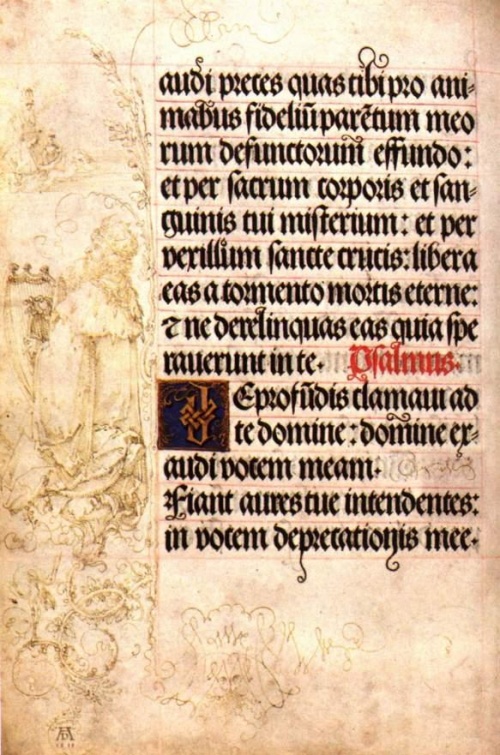 audi preces quas tibi pro ani-
mabus fideliū parētum meo
rum defunctorum effundo:
et per sacrum corporis et san-
guinis tui misterium: et per
vexillum sancte crucis: libera
eas a tormento mortis eterne:
⁊ ne derelinquas eas quia spe
rauerunt in te. Psalmus.
DE profūdis clamaui ad
te domine: domine ex-
audi vocem meam.
Fiant aures tue intendentes:
in vocem deprecationis mee.
AD